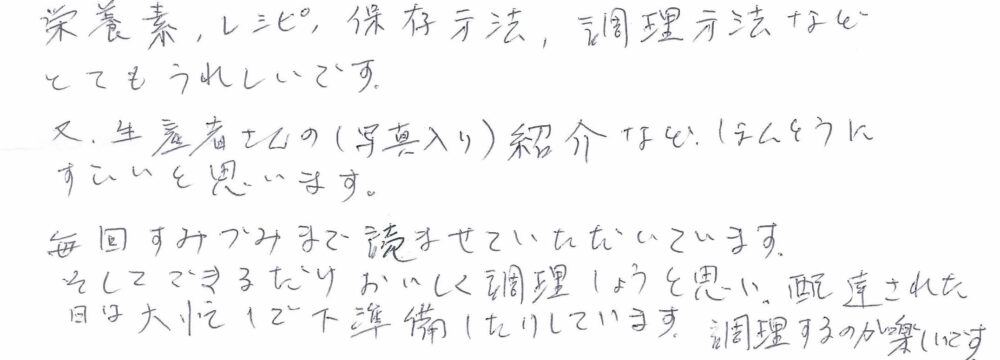 栄養素，レシピ，保存方法，調理方法など
とてもうれしいです。
又、生産者さんの(写真入り)紹介など、ほんとうに
すごいと思います。
毎回すみずみまで読ませていただいています。
そしてできるだけおいしく調理しようと思い、配達された
日は大忙しで下準備したりしています。調理するのが楽しいです